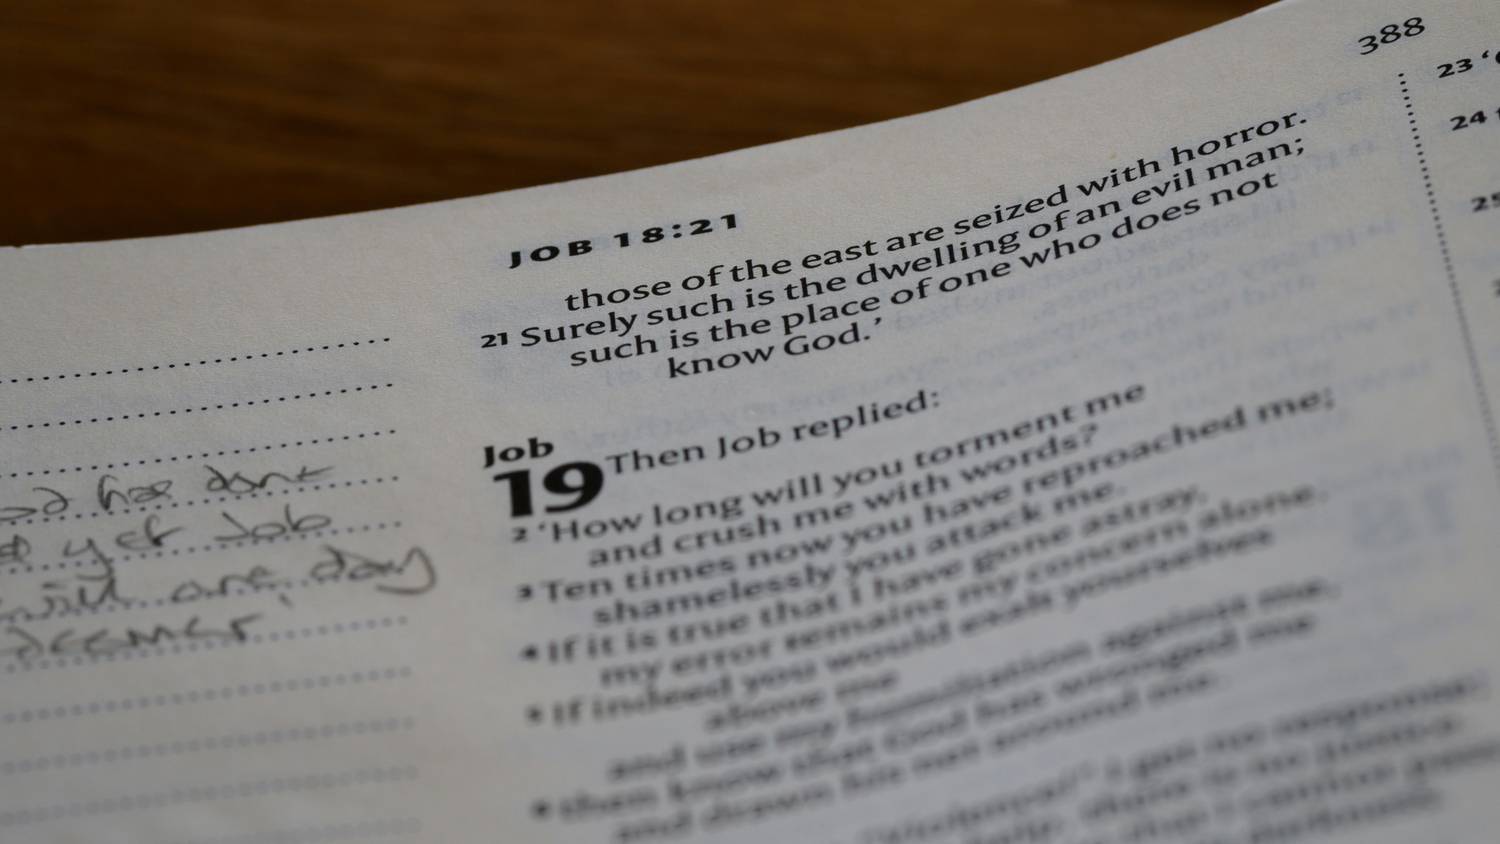 388
JOB 18:21
those of the east are seized with horror.
21 Surely such is the dwelling of an evil man;
such is the place of one who does not
know God.’
Job
19 Then Job replied:
2 ‘How long will you torment me
and crush me with words?
3 Ten times now you have reproached me;
shamelessly you attack me.
4 If it is true that I have gone astray,
my error remains my concern alone.
5 If indeed you would exalt yourselves
above me
and use my humiliation against me,
6 then know that God has wronged me
and drawn his net around me.
has done
yet Job
will one day
23 ‘
24
25